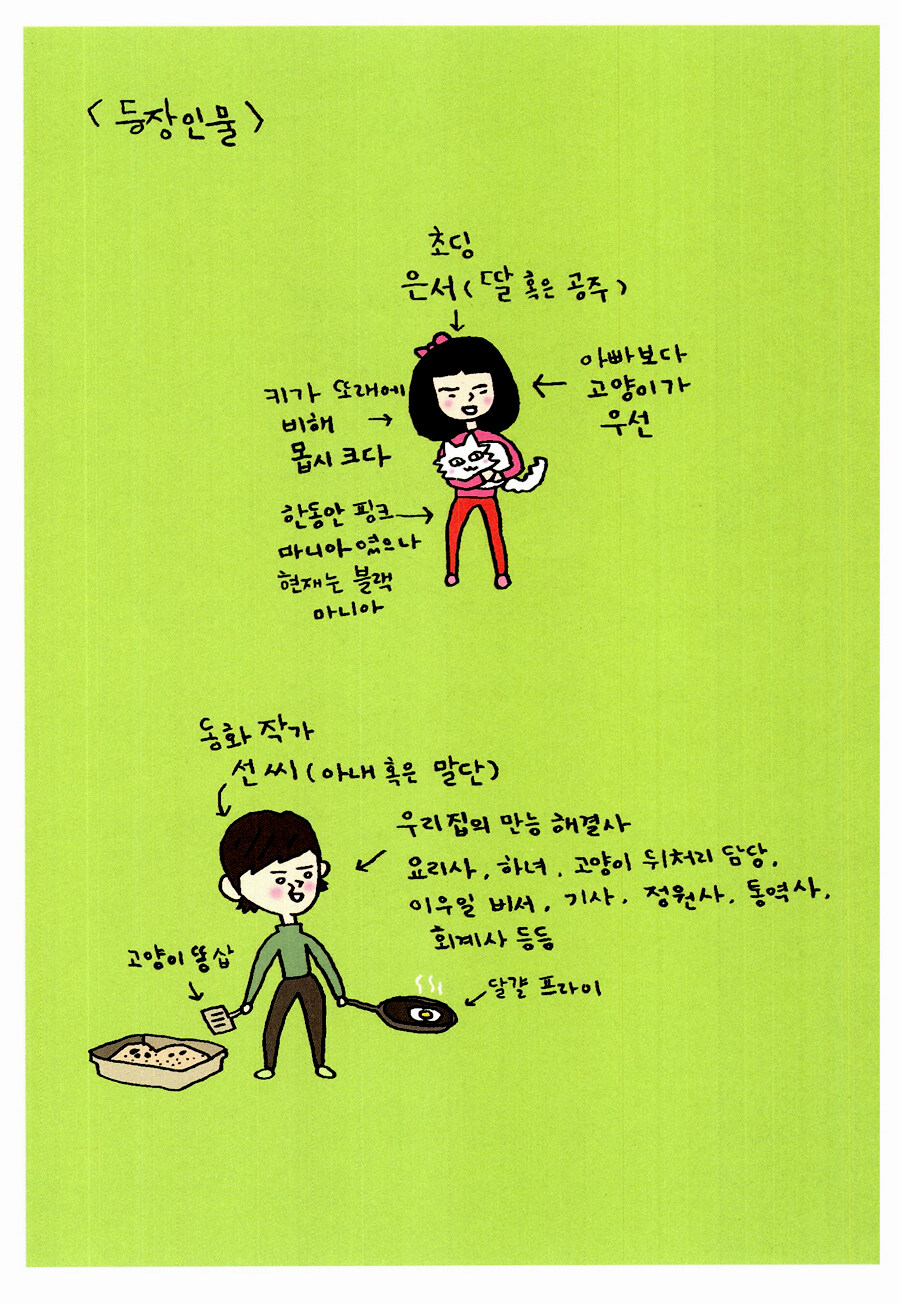 < 등장인물 >
초딩
은서 (딸 혹은 공주)
아빠보다
고양이가
우선
키가 또래에
비해
몹시 크다
한동안 핑크
마니아였으나
현재는 블랙
마니아
동화 작가
선 씨 (아내 혹은 말단)
우리집의 만능 해결사
요리사, 하녀, 고양이 뒤처리 담당,
이우일 비서, 기사, 정원사, 통역사,
회계사 등등
고양이 똥삽
달걀 프라이